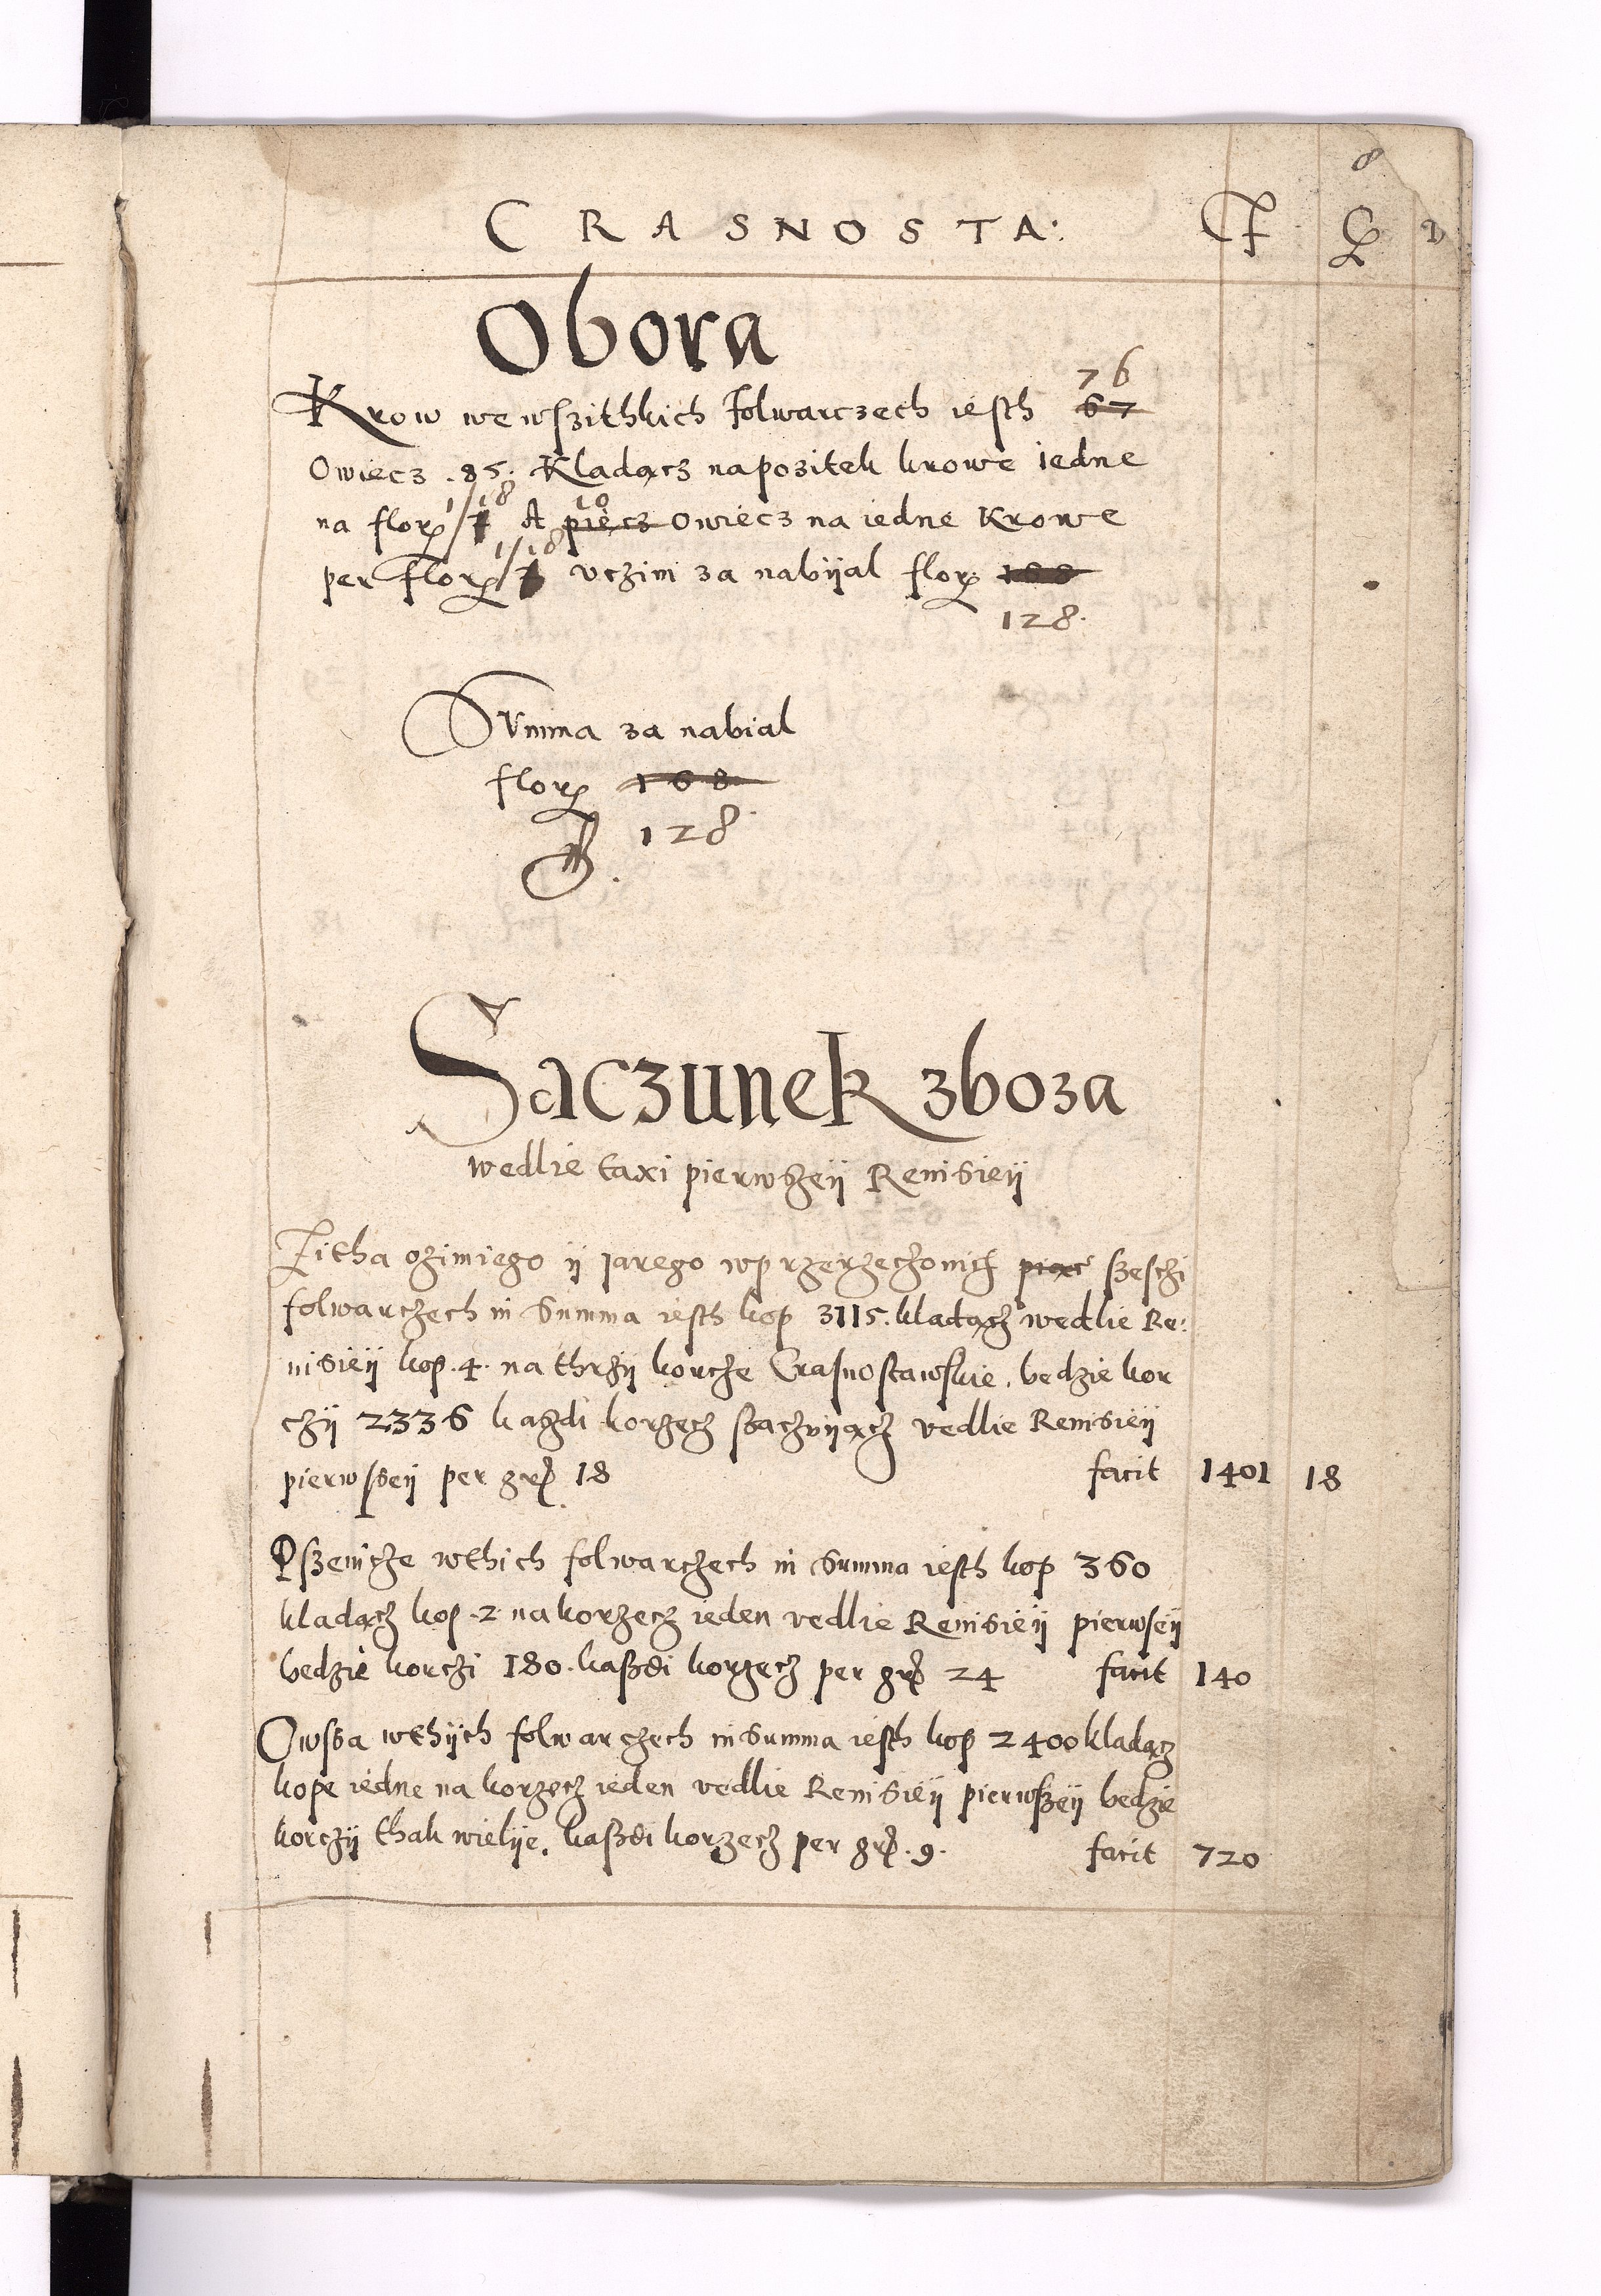 8
CRASNOSTA: F G D
Obora
76
Krow we wszithkich Folwarczech iesth 67
Owiecz .85. Kladącz na pozitek krowe iedne
1/18 10
na flor 1 A pięcz Owiecz na iedne Krowe
1/18
per Flor 1 vczini za nabijal flor 168
128.
Summa za nabial
flor 168
128
Saczunek zboza
wedlie taxi pierwszeij Remisieij
Zitha ozimiego ij Jarego w przerzeczonich piąci szesczi
folwarczech in summa iesth kop 3115. kladącz wedlie Re:
misieij kop .4. na thrzij korcze Crasnostawskie. bedzie kor
czij 2336 kazdi korzecz szaczuijącz vedlie Remisieij
pierwszeij per gr 18 facit 1401 18
Pszenicze w thich folwarczech in summa iesth kop 360
kladącz kop .2. na korzecz ieden vedlie Remisieij pierwseij
bedzie korczi 180. kaszdi korzecz per gr 24 facit 140
Owsza w thijch folwarczech in summa iesth kop 2400 kladącz
kope iedne na korzecz ieden vedlie Remisieij pierwszeij bedzie
korczij thak wielije. kaszdi korzecz per gr .9. facit 720